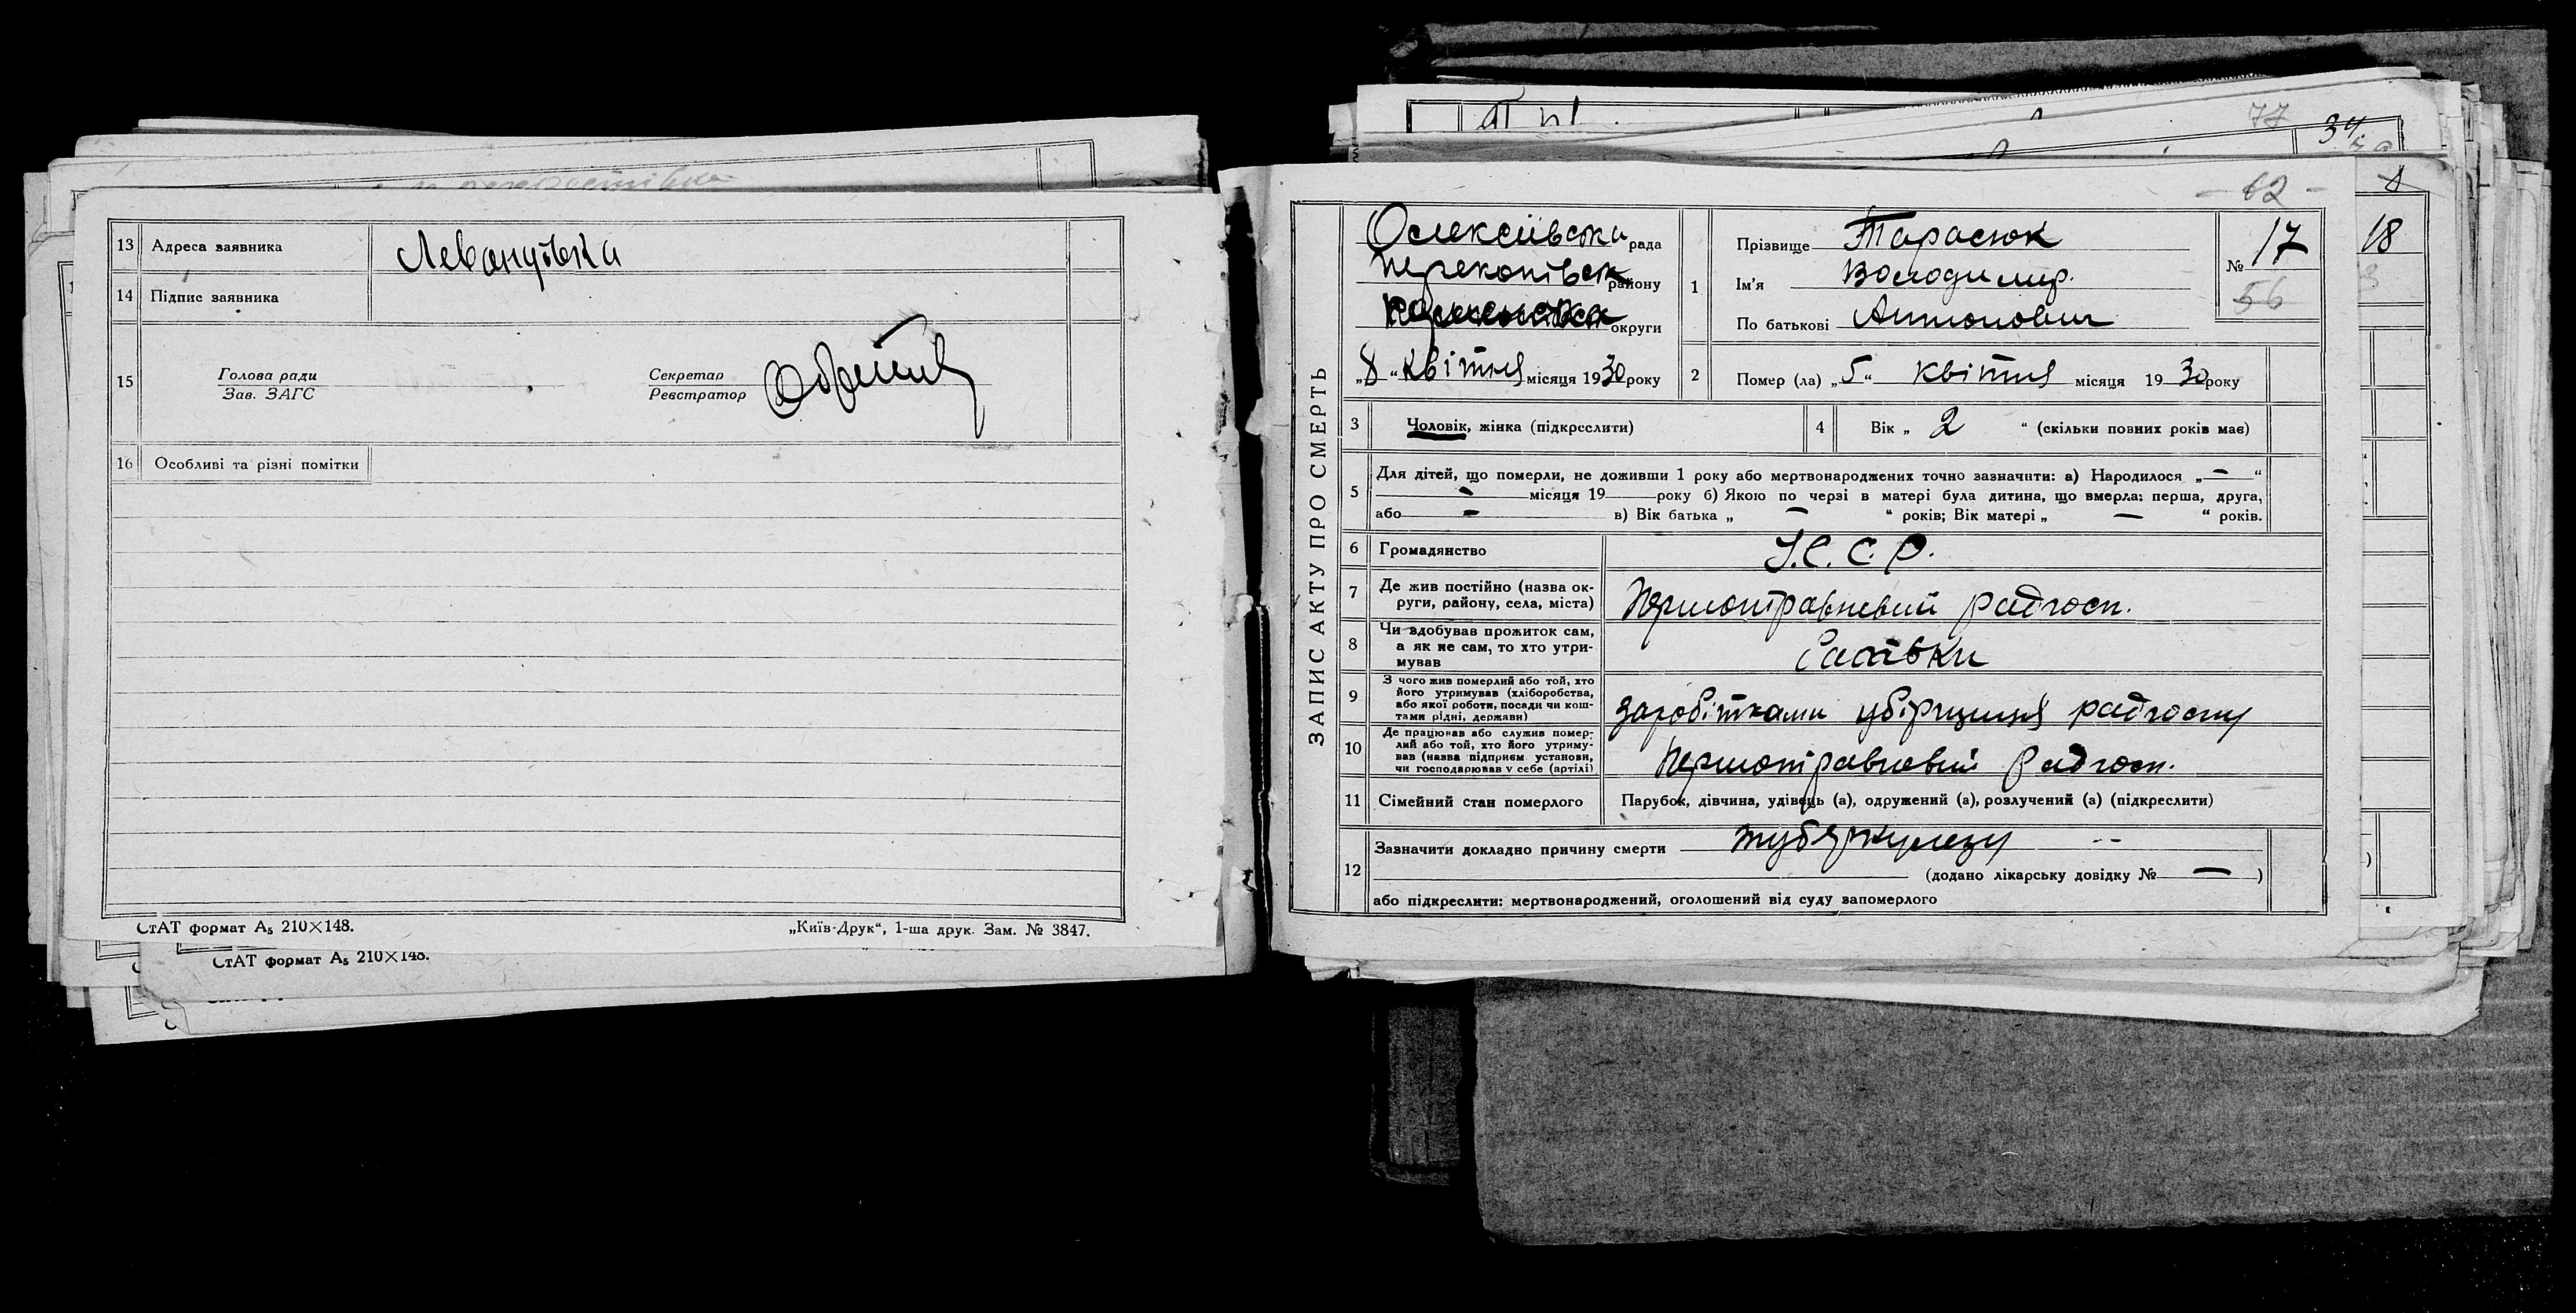 13 Адреса заявника Левонувка
14 Підпис заявника
15 Голова ради Секретар
Зав. ЗАГС Реєстратор
16 Особливі та різні помітки
СтАТ формат А5 210×148. „Київ-Друк“, 1-ша друк. Зам. № 3847.
СтАТ формат А5 210×148.
77
34
62
18
ЗАПИС АКТУ ПРО СМЕРТЬ
Олексиївська рада
Перекопівськ району
округи
„8“ квітня місяця 1930 року
1 Прізвище Тарасюк
Ім'я Володимир.
По батькові Антонович
№ 17
56
2 Помер (ла) „5“ квітня місяця 1930 року
3 Чоловік, жінка (підкреслити)
4 Вік „ 2 “ (скільки повних років має)
5 Для дітей, що померли, не доживши 1 року або мертвонароджених точно зазначити: а) Народилося „ — “
— місяця 19 року б) Якою по черзі в матері була дитина, що вмерла: перша, друга,
або — в) Вік батька „ — “ років; Вік матері „ — “ років.
6 Громадянство У.С.С.Р.
7 Де жив постійно (назва округи, району, села, міста) Першотравневий радгосп.
8 Чи здобував прожиток сам,
а як не сам, то хто утримував
9 З чого жив померлий або той, хто
його утримував (хліборобства,
або якої роботи, посади чи коштами рідні, держави) заробітками убірщиця радгоспу
10 Де працював або служив померлий або той, хто його утримував (назва підприєм. установи,
чи господарював у себе (артілі) Першотравневий радгосп.
11 Сімейний стан померлого Парубок, дівчина, удівець (а), одружений (а), розлучений (а) (підкреслити)
12 Зазначити докладно причину смерти туберкулезу
(додано лікарську довідку № — )
або підкреслити: мертвонароджений, оголошений від суду запомерлого